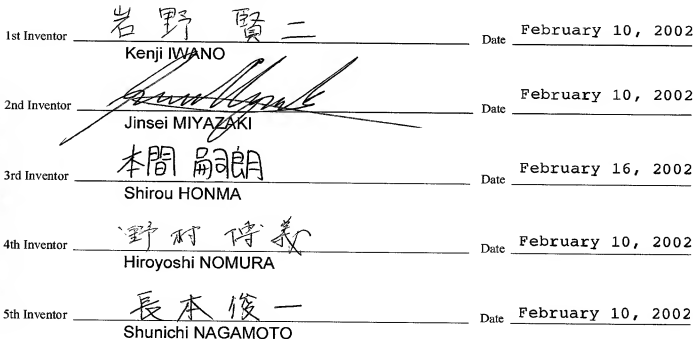 1st Inventor 岩野 賢二 Date February 10, 2002
Kenji IWANO
2nd Inventor Date February 10, 2002
Jinsei MIYAZAKI
3rd Inventor 本間 嗣朗 Date February 16, 2002
Shirou HONMA
4th Inventor 野村 博義 Date February 10, 2002
Hiroyoshi NOMURA
5th Inventor 長本 俊一 Date February 10, 2002
Shunichi NAGAMOTO